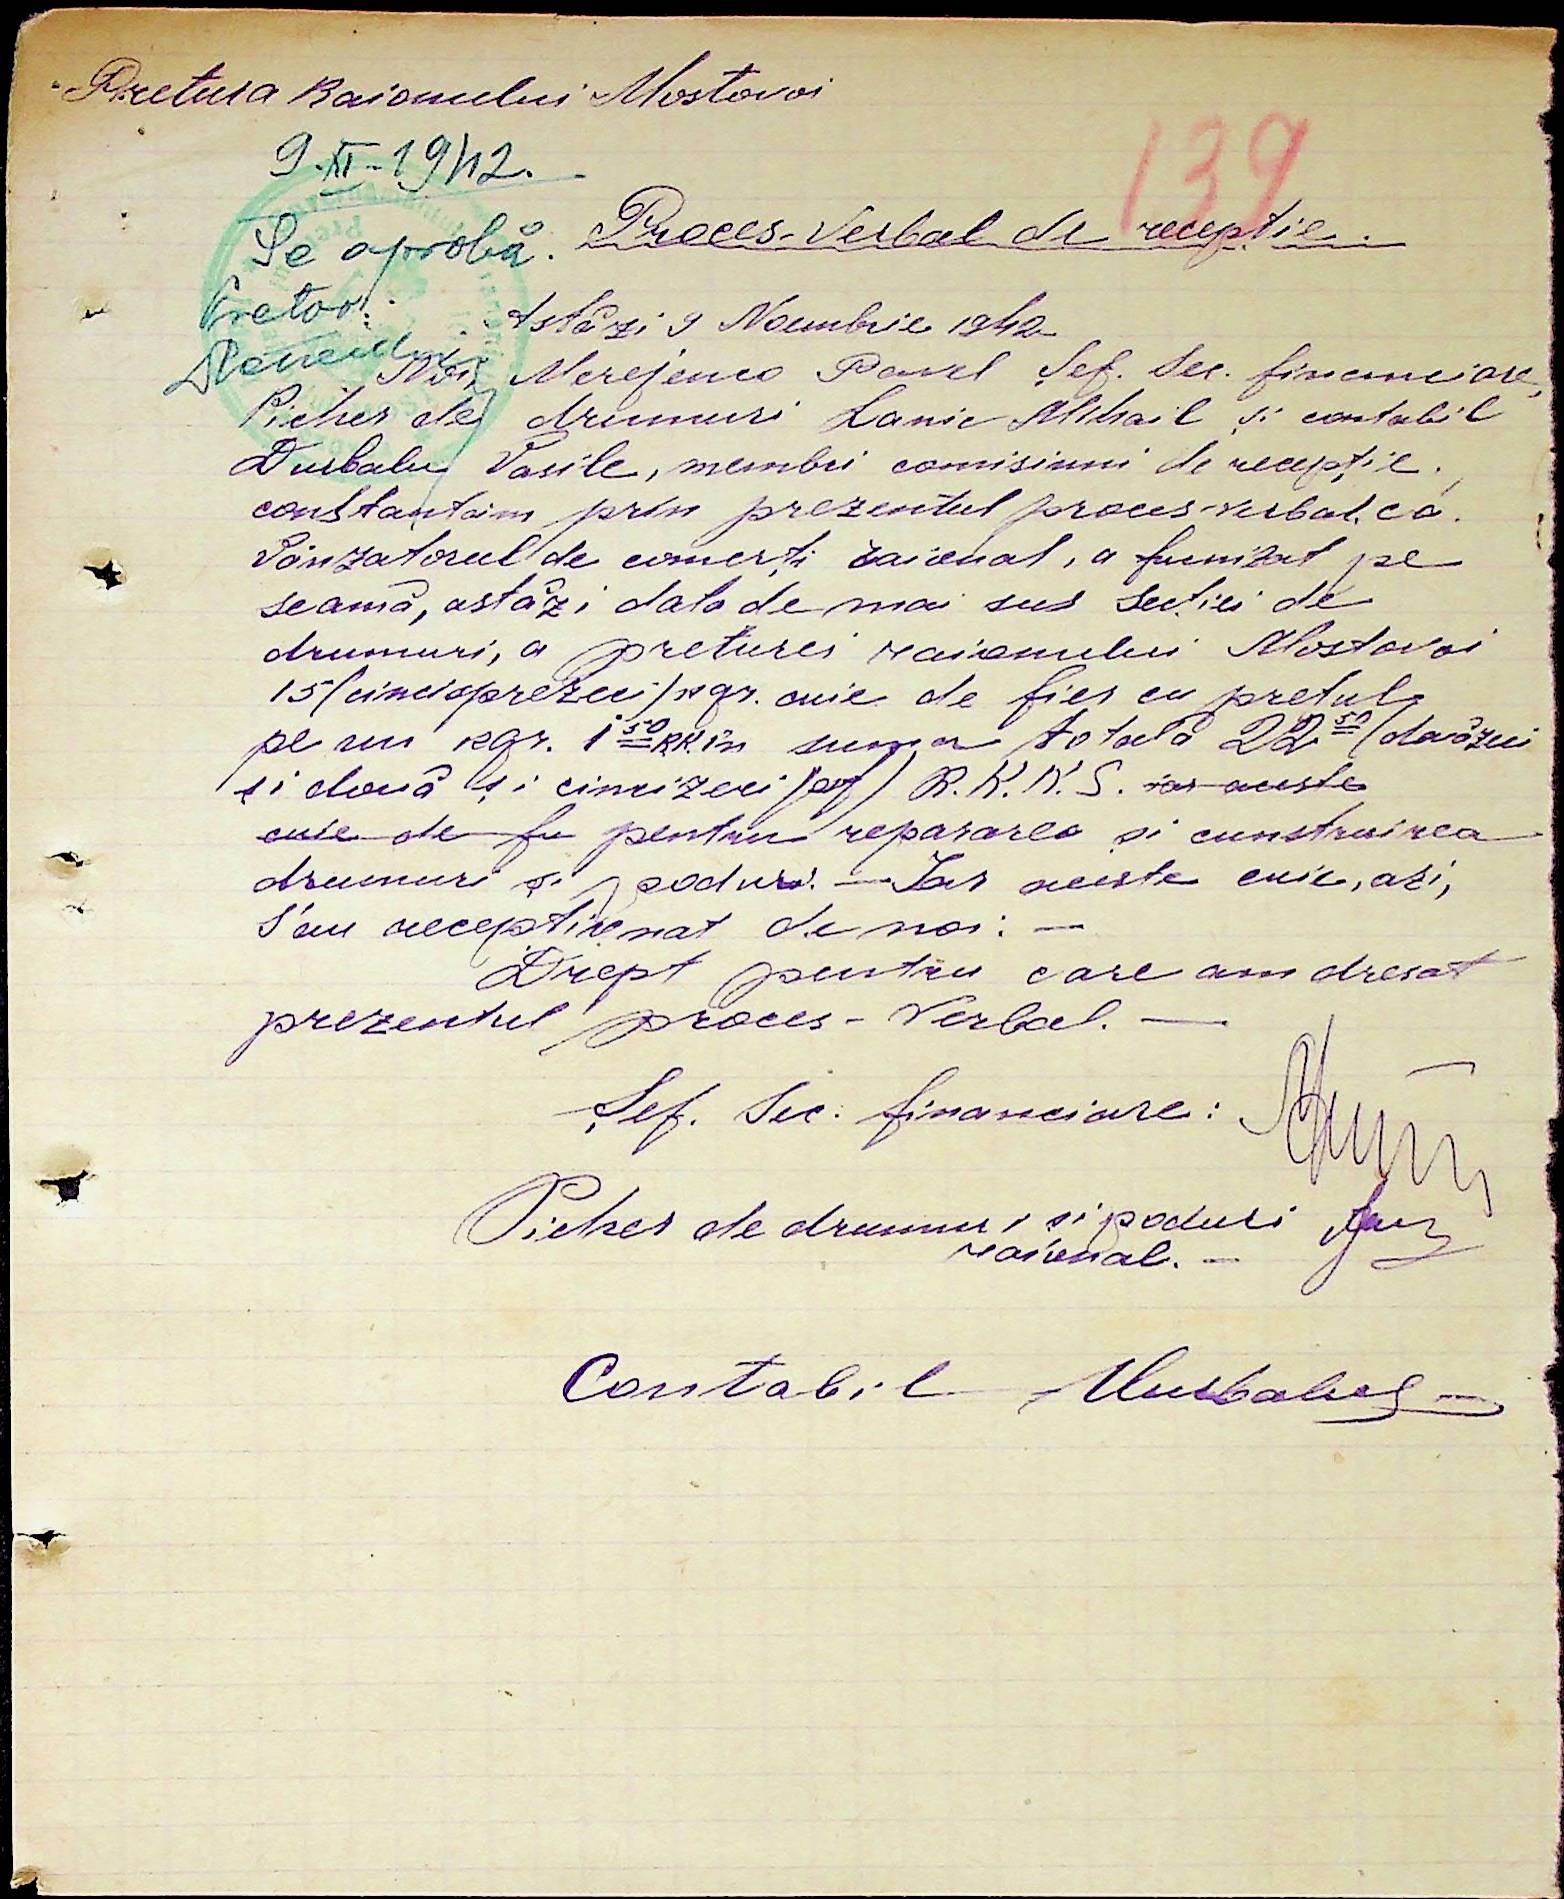 Pretura Raionului Mostovoi
139
9.XI-1942.
Se aprobă.
Pretor:
Proces-Verbal de recepție.
Astăzi 9 Noembrie 1942
Noi, Merejenco Pavel Șef. Sec. financiare,
Picher de drumuri Lanic Mihail și contabil
Durbaluș Vasile, membri comisiuni de recepție,
constantăm prin prezentul proces-verbal, că
Vânzatorul de comerți raional, a furnizat pe
seamă, astăzi data de mai sus Secției de
drumuri, a preturei raionului Mostovoi
15 (cincisprezeci) kgr. cuie de fier cu prețul
pe un kgr. 1 50 RK în suma totală 22 50 (douăzeci
și două și cincizeci pf) R.K.K.S. iar aceste
cuie de fu pentru repararea și cunstruirea
drumuri și poduri. — Iar aceste cuie, azi,
s'au recepționat de noi: —
Drept pentru care am dresat
prezentul proces-Verbal. —
Șef. Sec. financiare:
Picher de drumuri și poduri
raional. —
Contabil